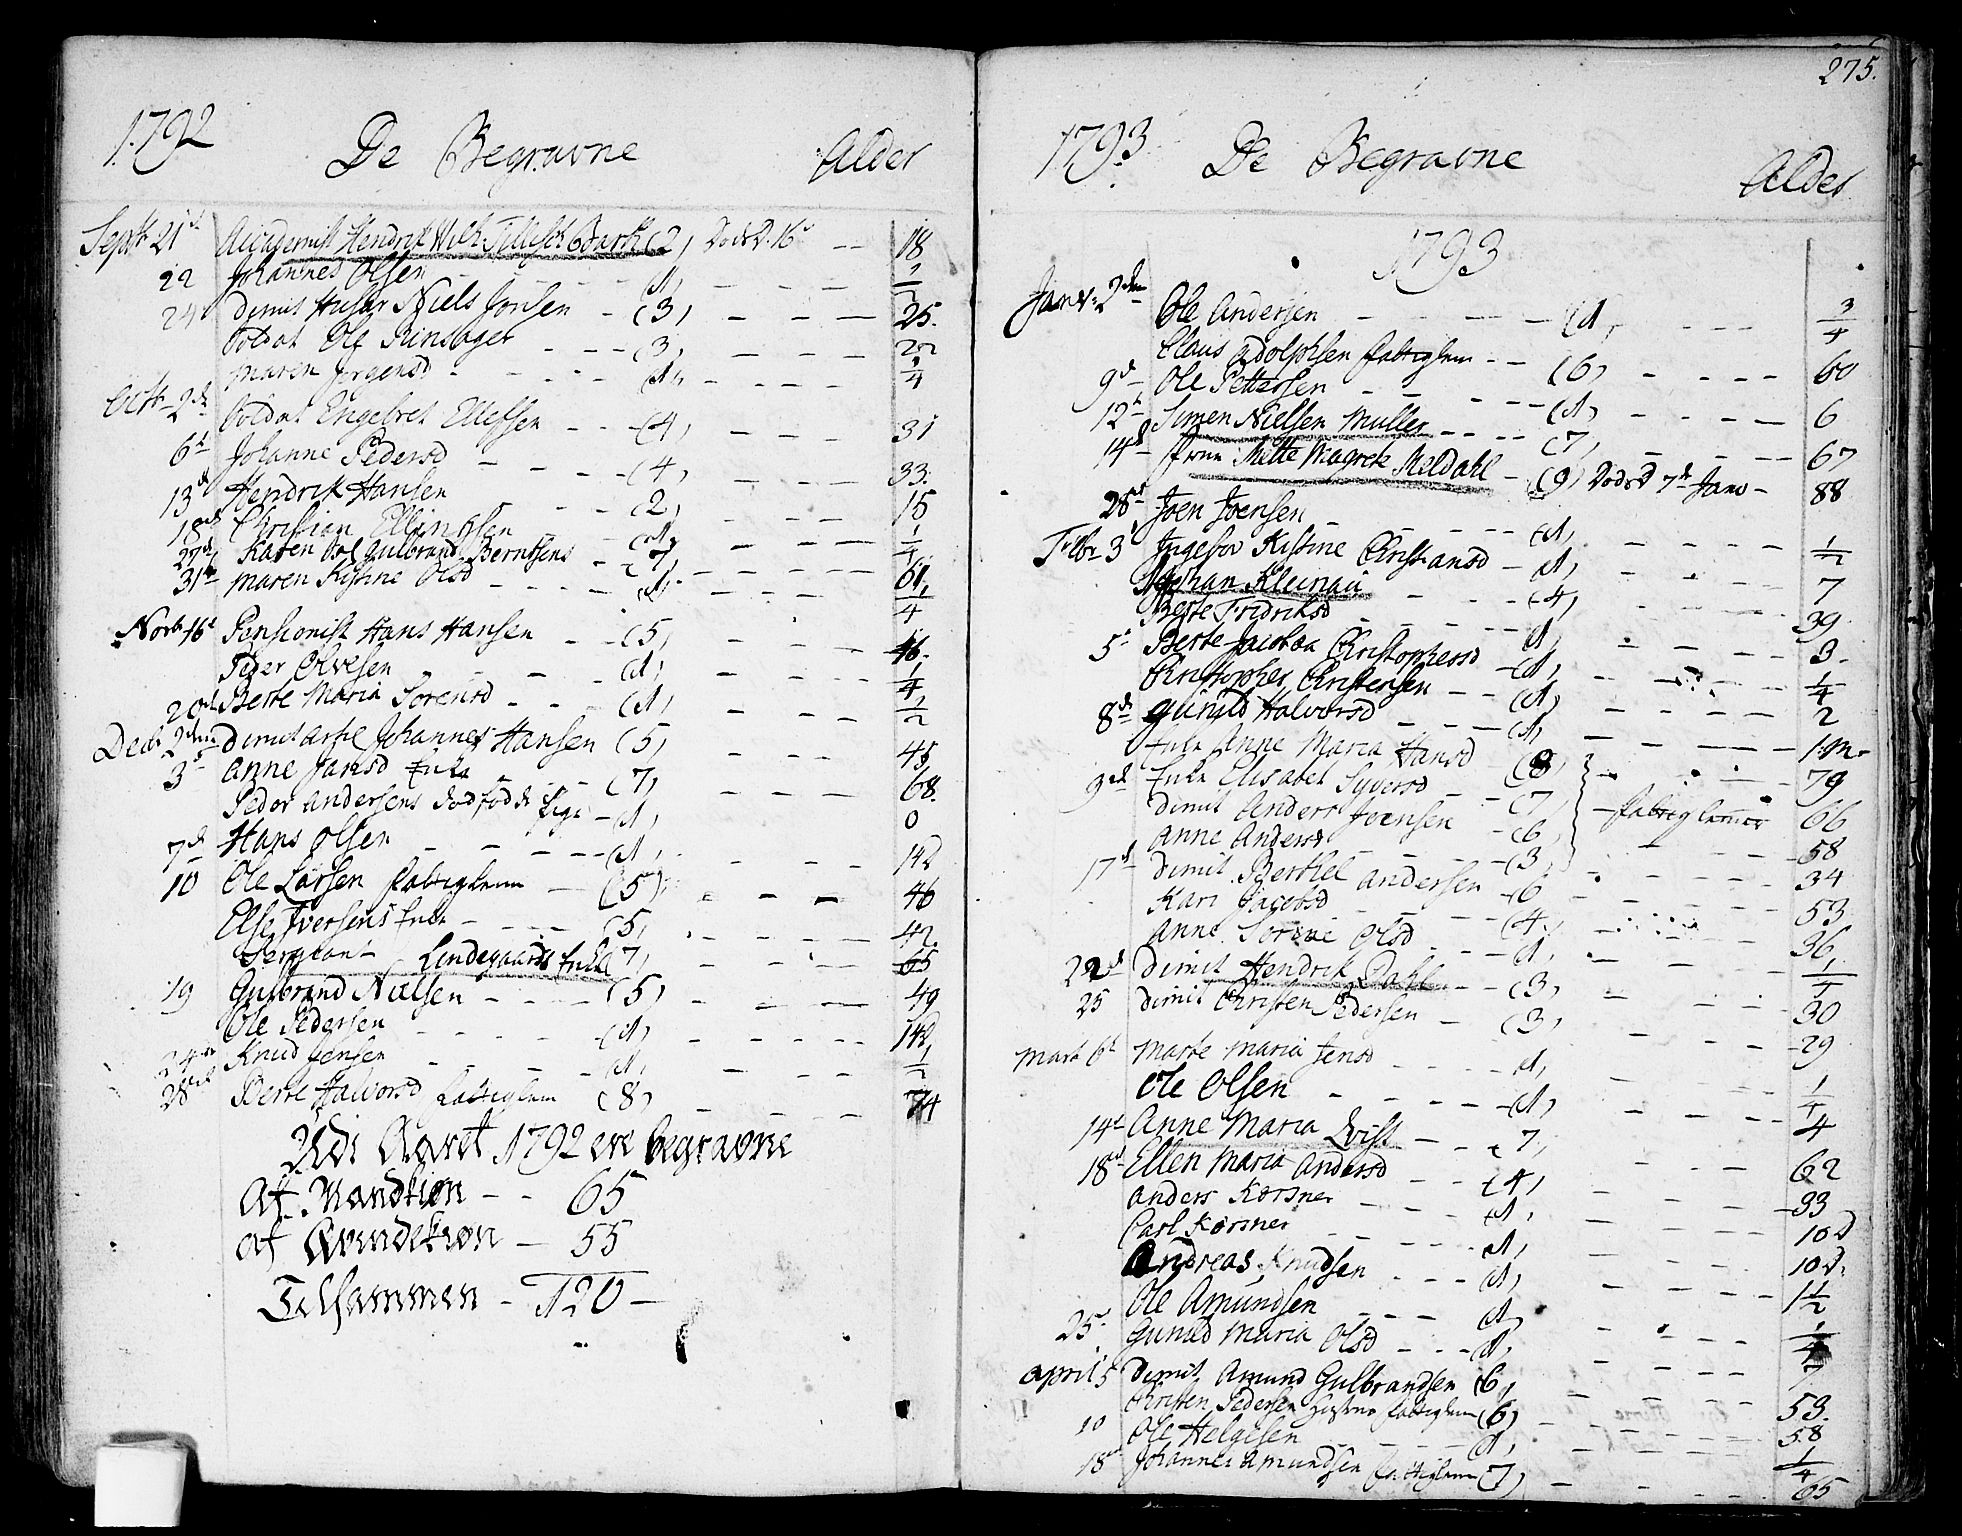 1792 De Begravne Alder
Septr 21d Academist Hendrik Wilh. Tillisch Bark (2) Døde D. 16d 18
22 Johannes Olsen (1) 1/2
24 Dimit Husar Niels Jonsen (3) 25.
Soldat Ole (3) 22
Maren Jørgensd (1) 1/4
Octr 2de Soldat Engebret Ellefsen (4) 31
6t Johanne Pedersd (4) 33.
13d Hendrik Hansen (2) 15
18 Christian Ellingsen (1)
27d Karen Gulbrand Berntsens 7) 61
31t Maren Kistine Olsd (1) 1/4
Novbr 16t Pensionist Hans Hansen (5) 46.
Peder Olvesen (1) 1/4
20d Berte Maria Sørensd (1) 1/2
Decbr 2den Dimit Johannes Hansen (5) 45
3 Anne Jansd Enke (7) 68.
Peder Andersens dødfødde Pige (1) 0
7d Hans Olsen (1) 14D
10 Ole Larsen fattiglem (5) 46
Else Iversens Enke (5) 42.
Sergeant Lindegaards Enke 7) 65
19 Gulbrand Nielsen (5) 49
Ole Pedersen (1) 14D
24 Knud Jensen (1) 1/2
28 Berte Halvorsd fattiglem (8) 74
Udi Aaret 1792 ere begravne
Af Mandkiøn - - 65
af Qvindekiøn - 55
Tilsammen - 120 -
275.
1793 De Begravne Alder
1793
Janv: 2den Ole Andersen (1) 3/4
Claus Adolphsen fattiglem (6) 60
9d Ole Pettersen (1) 6
12t Simen Nielsen Muller (7) 67
14d Frue Mette Magrete Meldahl (9) Døde D 7d Janv 88
26 Joen Joensen (1) 1/2
Febr 3 Ingebor Kistine Christiansd (1) 7
Johan Kleinau (4) 39
Berte Fridriksd (1) 3.
5 Berte Jacobaa Christophersd (1) 1/4
Christopher Christensen (1) 2
8d Gunild Halvorsd (1) 1 M.
Enke Anne Maria Hansd (8) 79
9d Enke Elisabet Syversd (7) fattiglemmer 66
Dimit Anders Joensen (6) 58
Anne Andersd (3) 34
17d Dimit Berthel Andersen (6 53
Kari Jacobsd (4) 36
Anne Sørine Olsd (1)
22d Dimit Hendrik Dahl (3) 30
25 Dimit Christen Pedersen (3) 29
Marti 6t Marte Maria Jensd (1)
Ole Olsen (1) 4
14t Anne Maria Qvist 7) 62
18 Ellen Maria Andersd (4) 33
Anders Korsner (1) 10 D
Carl Korsner (1) 10 D.
Andreas Knudsen (1) 1 1/2
Ole Amundsen (1)
25 Gunild Maria Olsd (1) 7
April 5 Dimit Amund Gulbrandsen (6) 53.
Christen Pedersen fattiglem (6) 58
10 Ole Helgesen (1) 1/4
18 Johannes Amundsen fattiglem (7) 65